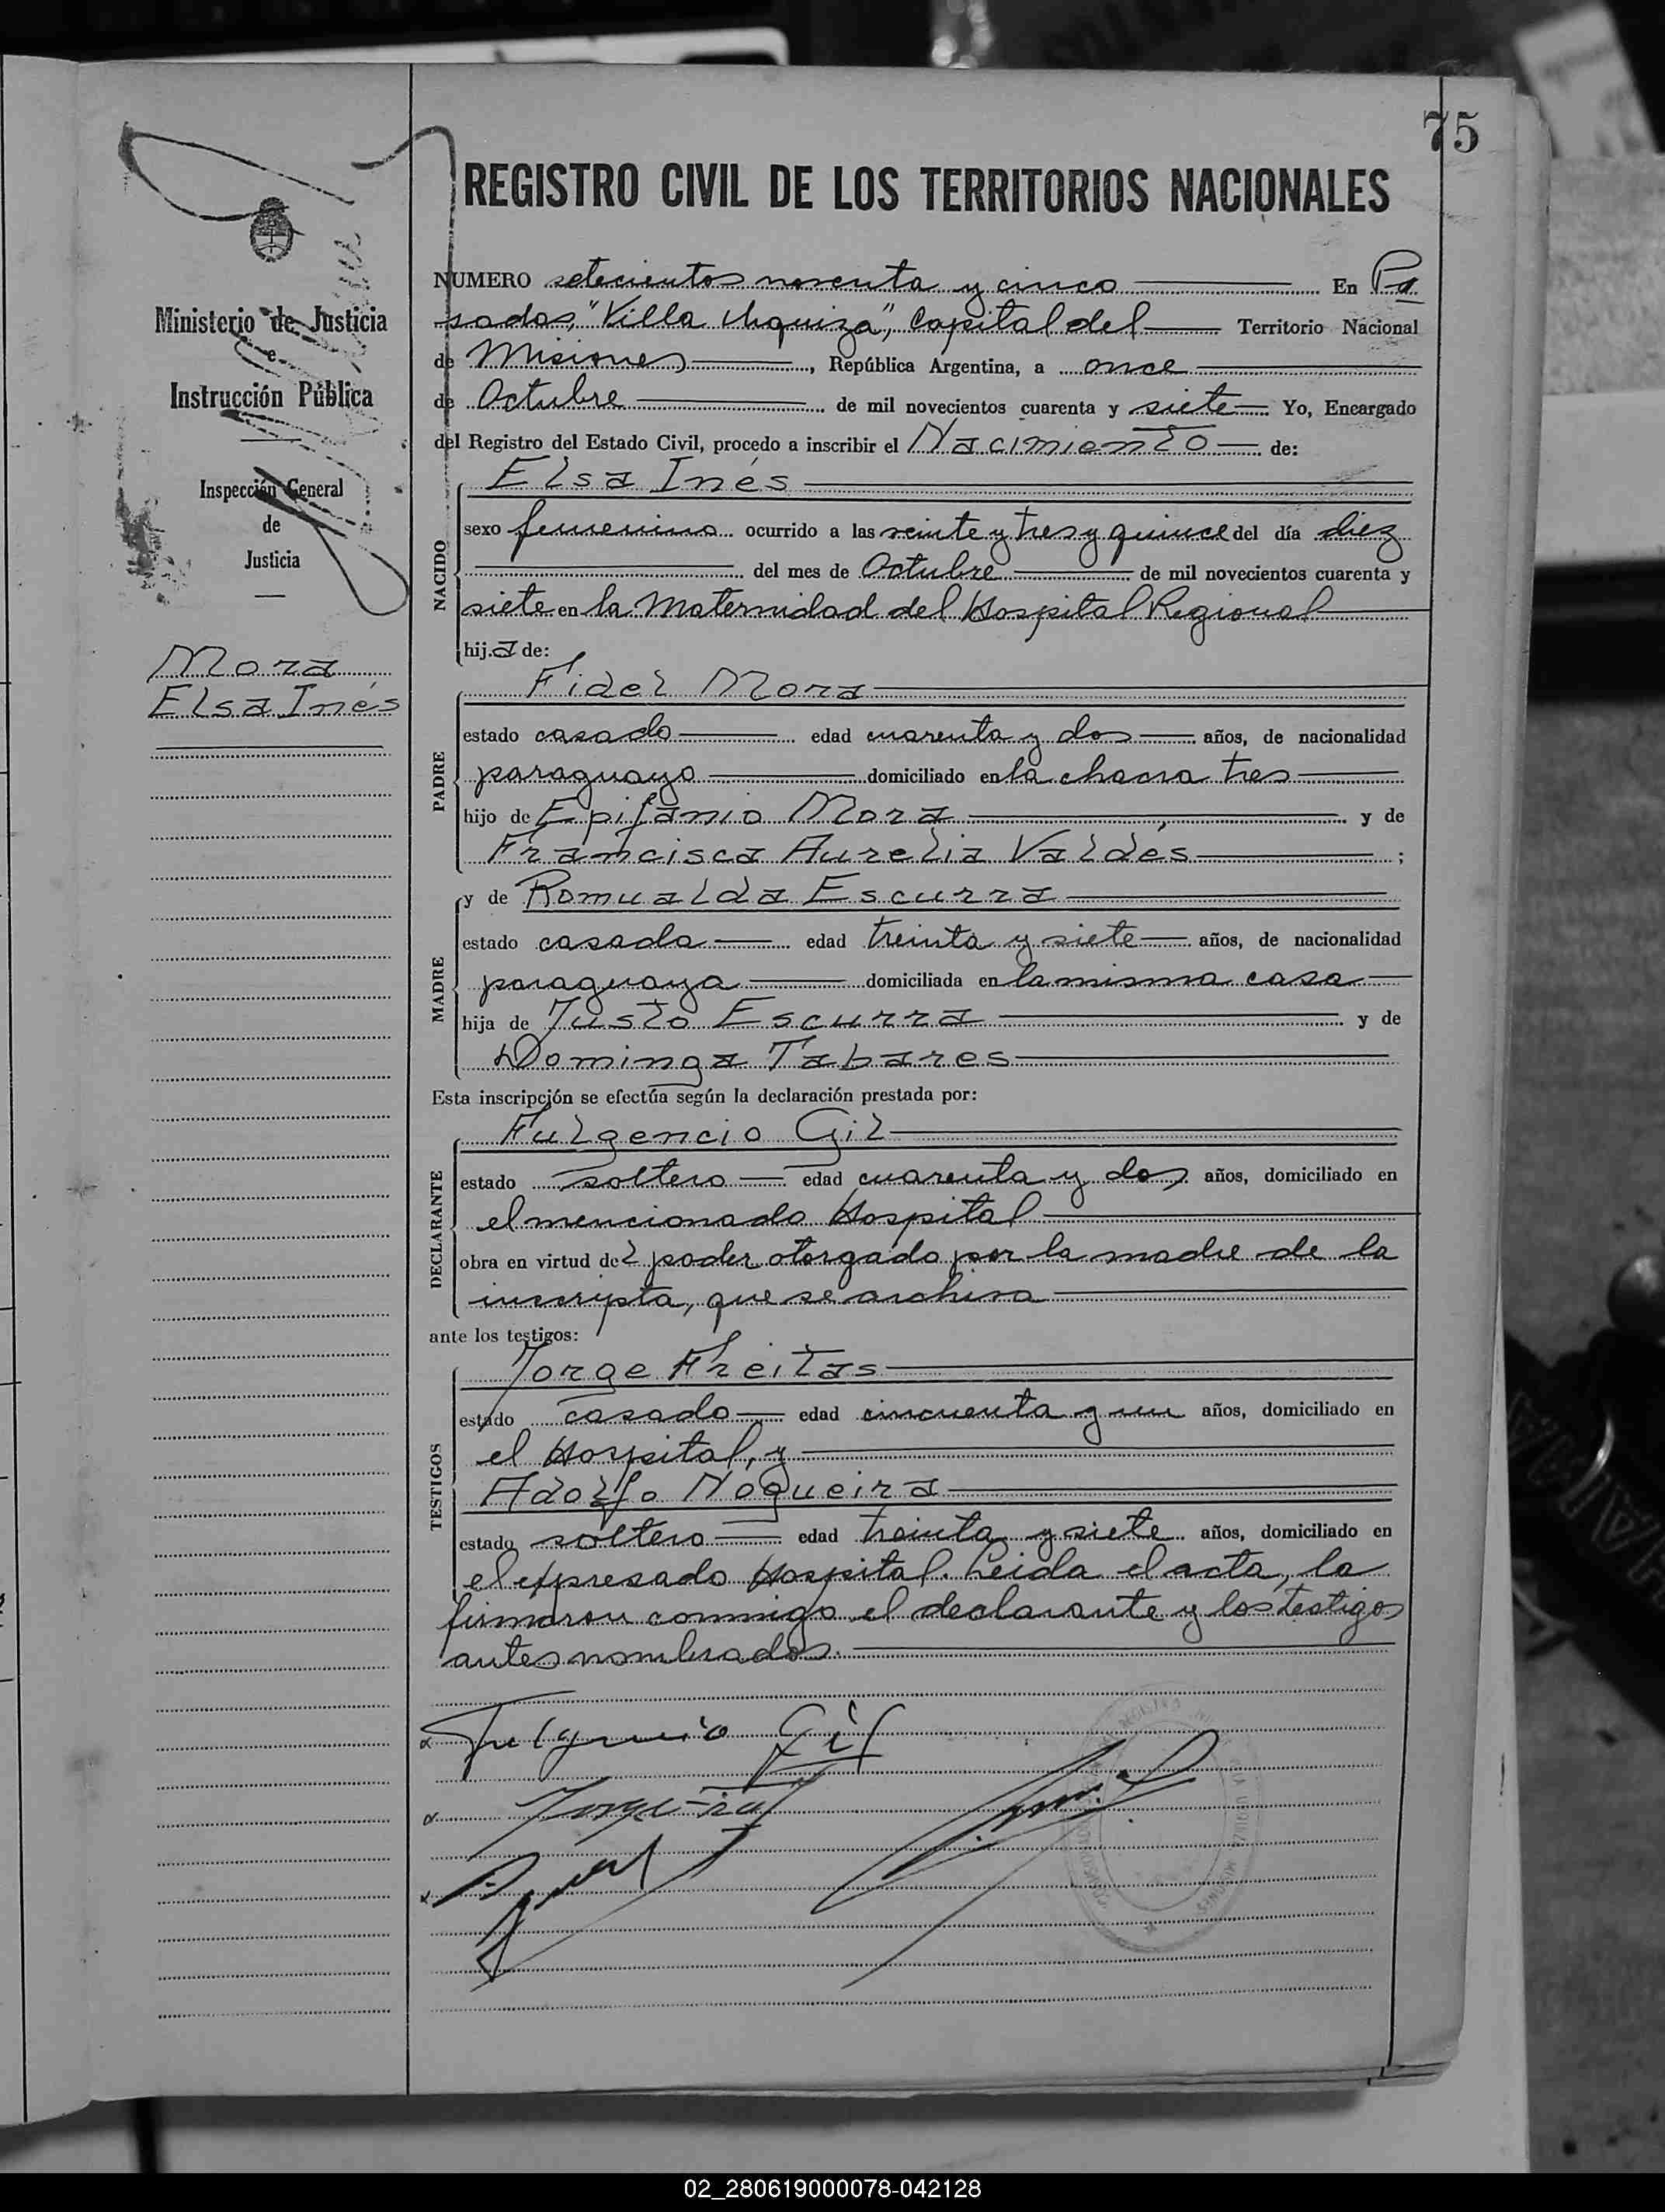 75
REGISTRO CIVIL DE LOS TERRITORIOS NACIONALES
Ministerio de Justicia
e
Instrucción Pública
Inspección General
de
Justicia
Mora
Elsa Inés
NUMERO setecientos noventa y cinco En Po
sadas, "Villa Urquiza", Capital del Territorio Nacional
de Misiones, República Argentina, a once
de Octubre de mil novecientos cuarenta y siete Yo, Encargado
del Registro del Estado Civil, procedo a inscribir el Nacimiento de:
NACIDO
Elsa Inés
sexo femenino ocurrido a las veinte y tres y quince del día diez
del mes de Octubre de mil novecientos cuarenta y
siete en la Maternidad del Hospital Regional
hija de:
PADRE
Fidel Mora
estado casado edad cuarenta y dos años, de nacionalidad
paraguayo domiciliado en la chacra tres
hijo de Epifanio Mora, y de
Francisca Aurelia Valdés;
MADRE
y de Romualda Escurra
estado casada edad treinta y siete años, de nacionalidad
paraguaya domiciliada en la misma casa
hija de Justo Escurra y de
Dominga Tabares
Esta inscripción se efectúa según la declaración prestada por:
DECLARANTE
Fulgencio Gil
estado soltero edad cuarenta y dos años, domiciliado en
el mencionado Hospital
obra en virtud del poder otorgado por la madre de la
inscripta, que se archiva
ante los testigos:
TESTIGOS
Jorge Freitas
estado casado edad cincuenta y un años, domiciliado en
el Hospital, y
Adolfo Nogueira
estado soltero edad treinta y siete años, domiciliado en
el expresado Hospital. Leida el acta, la
firmaron conmigo el declarante y los testigos
antes nombrados.
Fulgencio Gil
02_280619000078-042128